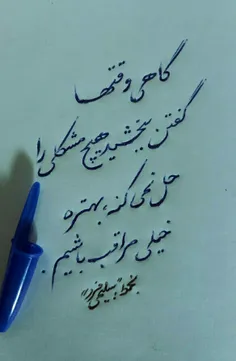 گاهی وقتها
گفتن ببخشید هیچ مشکلی را
حل نمی کنه، بهتره
خیلی مراقب باشیم.
بخط: